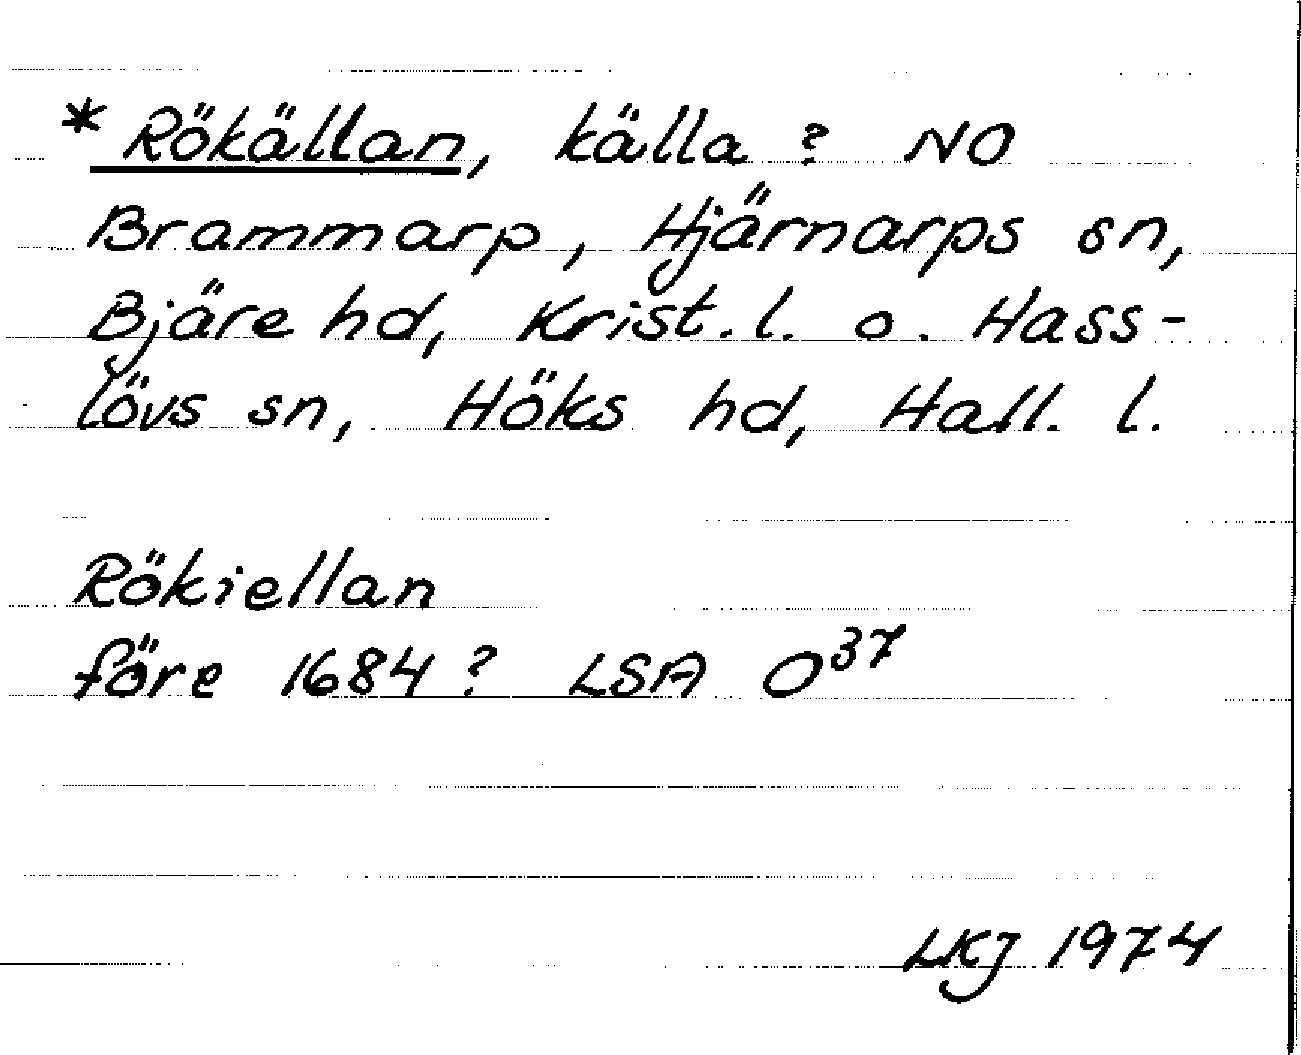 * Rökällan, källa ? NO
Brammarp, Hjärnarps sn,
Bjäre hd, Krist. l. o. Hass-
lövs sn, Höks hd, Hall. l.
Rökiellan
före 1684 ? LSA O³⁷
LKJ 1974